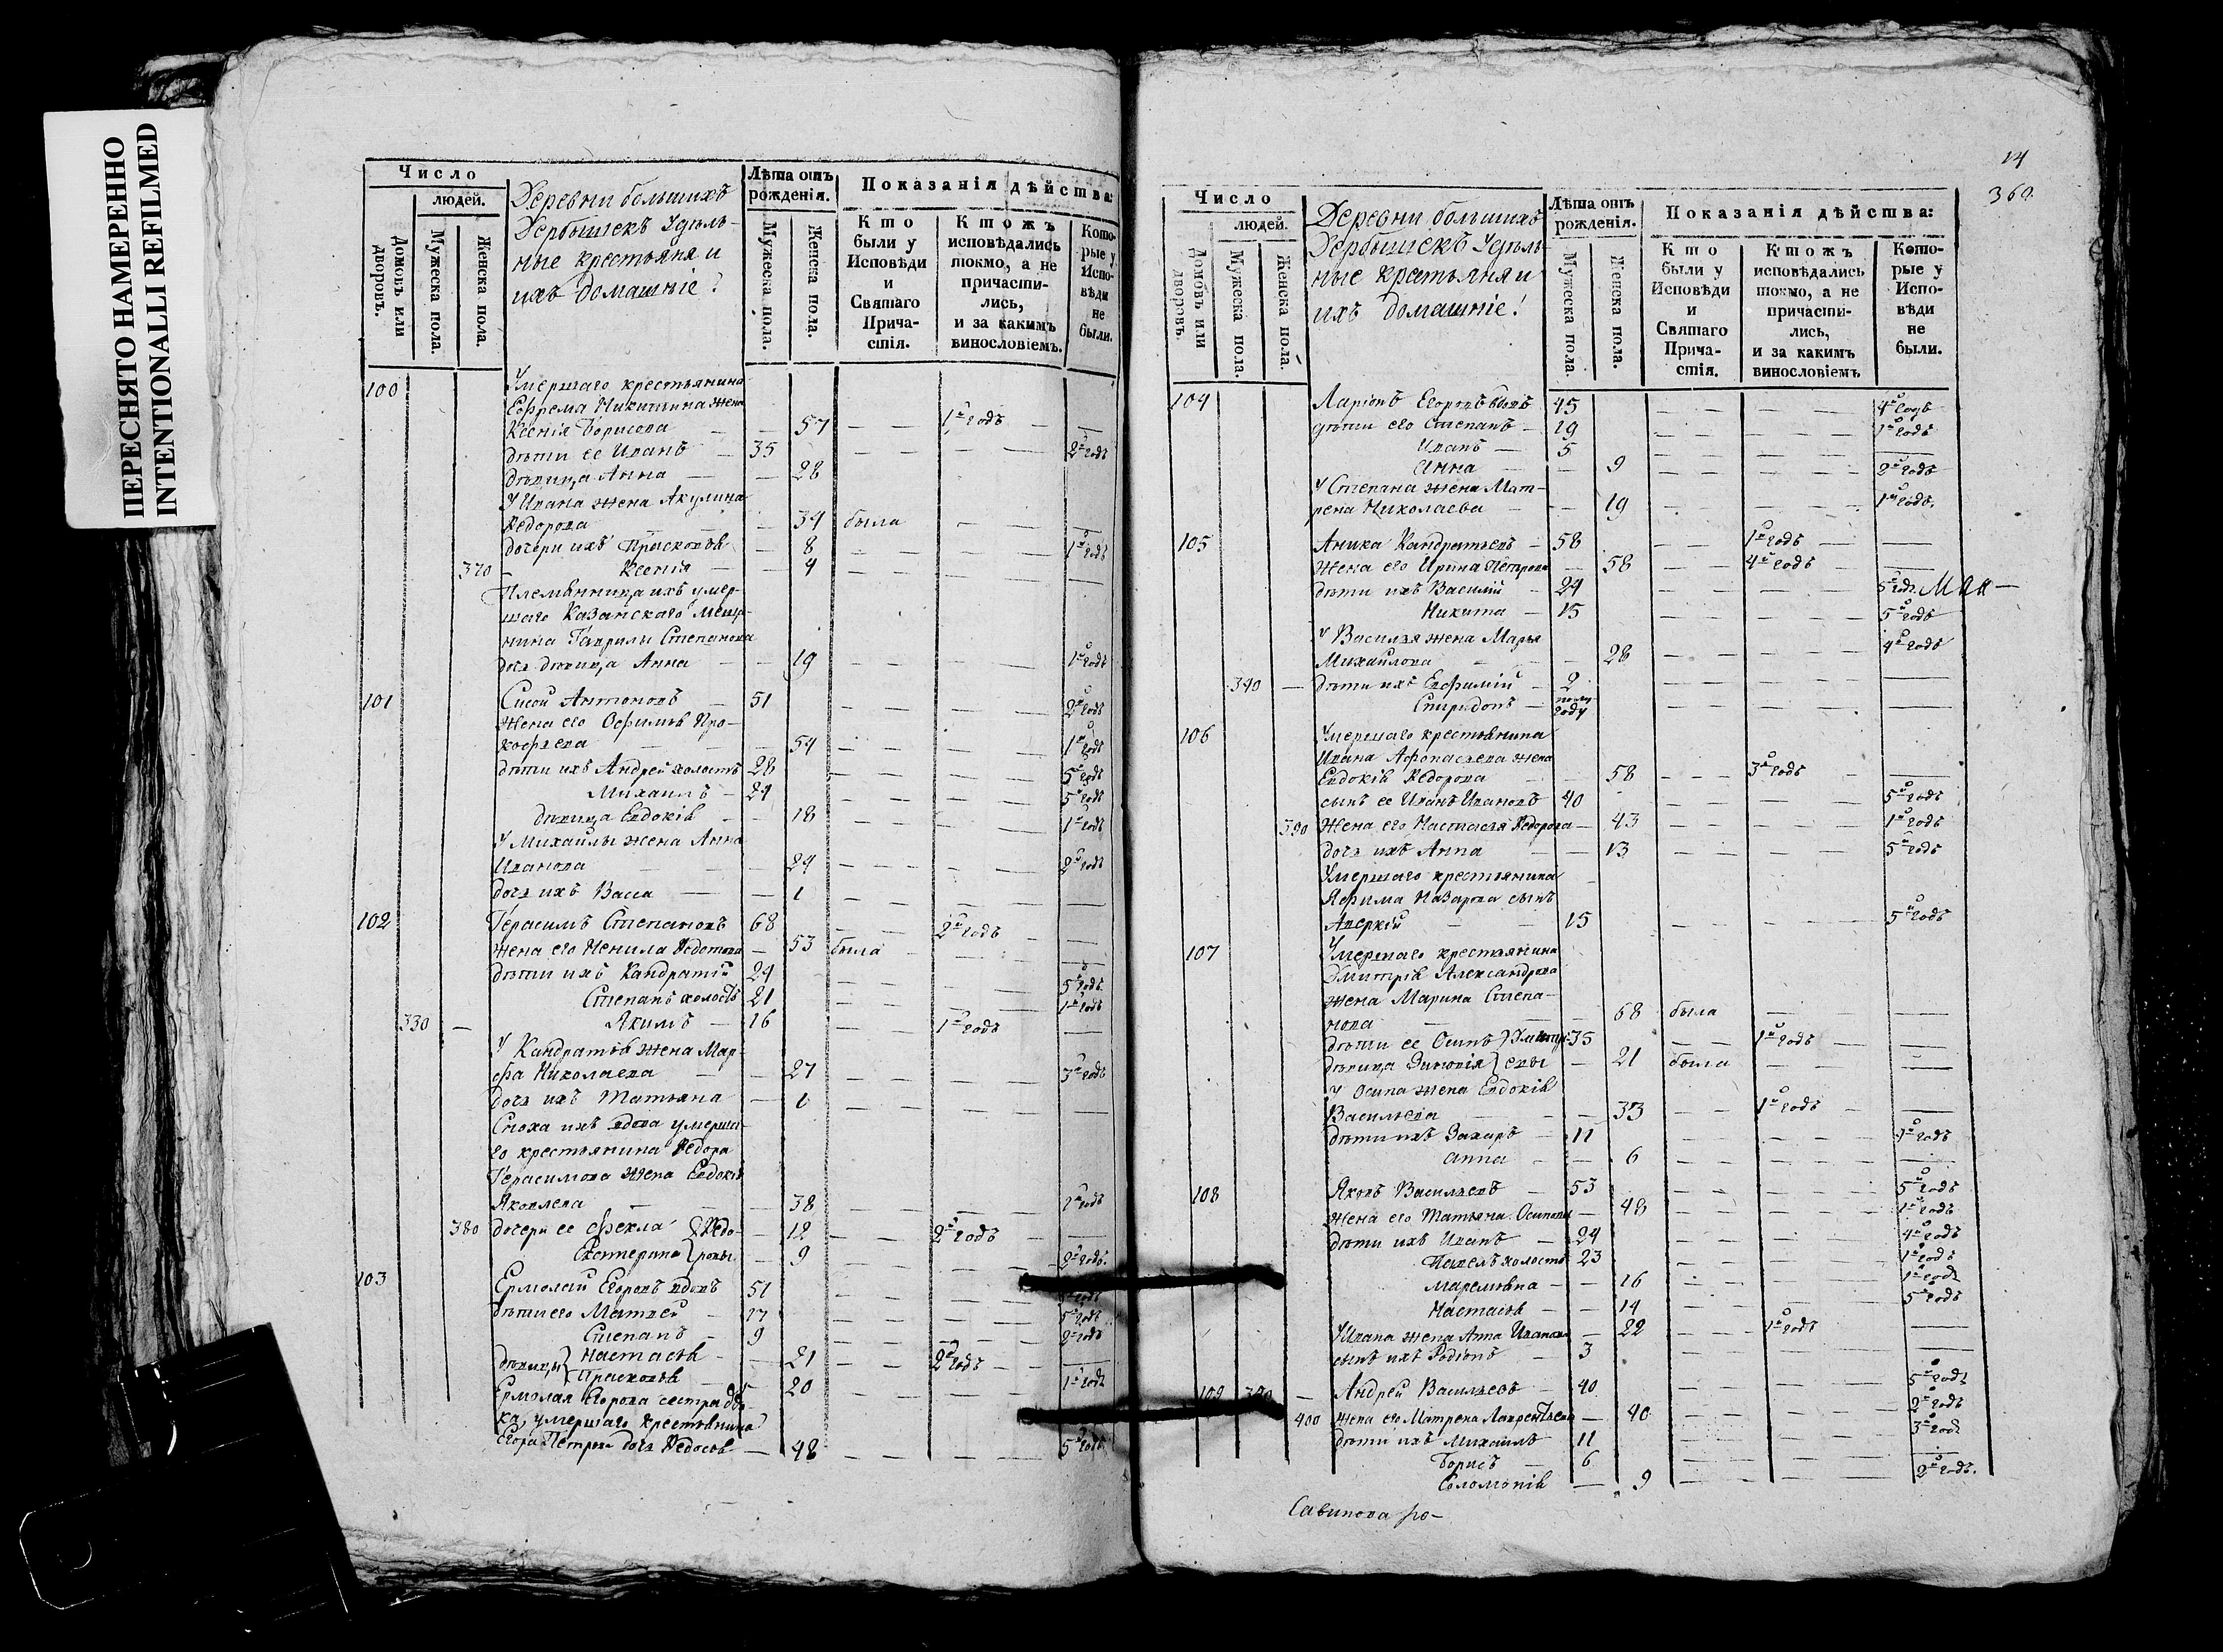 ПЕРЕСНЯТО НАМЕРЕННО
INTENTIONALLI REFILMED
Число
людей.
Домовъ или дворовъ.
Мужеска пола.
Женска пола.
Деревни большихъ
Дербышекъ Удѣль-
ные крестьяня и
ихъ домашніе:
Лѣта отъ рожденія.
Мужеска пола.
Женска пола.
Показанія дѣйства:
Кто были у Исповѣди и Святаго Прича-стія.
Ктожъ исповѣдались токмо, а не причасти-лись, и за какимъ винословіемъ.
Кото-рые у Испо-вѣди не были.
100 Умершаго крестьянина
Ефрема Никитина жена
Ксенія Борисова — 57 — — 1й годъ — —
дѣти ее Иванъ — 35 — — — — 2й годъ
дѣвица Анна — — 28
У Ивана жена Акулина
Ѳедорова — — 34 была — — —
дочери ихъ Прасковья — 8 — — — 1й годъ
370 — Ксенія — — 4 — — — —
Племянница ихъ умер-
шаго Казанскаго мещя-
нина Гаврилы Степанова
дочь дѣвица Анна — — 19 — — — — 1й годъ
101 Сысой Антоновъ — 51 — — — — 2й годъ
жена его Офимья Про-
кофьева — — 54 — — — — 1й годъ
дѣти ихъ Андрей холостъ 28 — — — — 5й годъ
Михаилъ — 24 — — — — 5й годъ
дѣвица Евдокія — — 18 — — — — 1й годъ
У Михайлы жена Анна
Иванова — — 24 — — — — 2й годъ
дочь ихъ Васса — — 1 — — — —
102 Герасимъ Степановъ 68 — — 2й годъ —
жена его Ненила Ѳедотова — 53 была — — —
дѣти ихъ Кандратій 24 — — — — 5й годъ
Степанъ холостъ 21 — — — — 1й годъ
330 — Якимъ — 16 — — 1й годъ —
У Кандратья жена Мар-
фа Николаева — — 27 — — — — 3й годъ
дочь ихъ Татьяна — 1 — — — —
Сноха ихъ вдова умерша-
го крестьянина Ѳедора
Герасимова жена Евдокія
Яковлева — — 38 — — — — 1й годъ
380 дочери ее Фекла } Ѳедо- — 12 — — 2й годъ — —
Екатерина } ровы — 9 — — — — 2й годъ.
103 Ермолай Егоровъ вдовъ 51 — — — —
дѣти его Матвей — 17 — — — — 5й годъ
Степанъ — 9 — — — — 2й годъ
дѣвицы { Настасья — — 21 — — 2й годъ — —
Прасковья — — 20 — — — — 1й годъ
Ермолая Егорова сестра дѣв-
ка, умершаго крестьянина
Егора Петрова дочь Ѳедосья — 48 — — — — 5й годъ.
14
360
Число
людей.
Домовъ или дворовъ.
Мужеска пола.
Женска пола.
Деревни большихъ
Дербышекъ Удѣль-
ные крестьяня и
ихъ домашніе!
Лѣта отъ рожденія.
Мужеска пола.
Женска пола.
Показанія дѣйства:
Кто были у Исповѣди и Святаго Прича-стія.
Ктожъ исповѣдались токмо, а не причасти-лись, и за какимъ винословіемъ
Кото-рые у Испо-вѣди не были.
104 Ларіонъ Егоровъ вдовъ 45 — — — — 4й годъ
дѣти его Степанъ — 19 — — — — 1й годъ
Иванъ — 5 — — — —
Анна — — 9 — — — — 2й годъ
У Степана жена Мат-
рена Николаева — — 19 — — — — 1й годъ.
105 Аника Кандратьевъ — 58 — — 1й годъ — —
жена его Ирина Петрова — 58 — — 4й годъ — —
дѣти ихъ Василий — 24 — — — — 5й годъ.
Никита — 15 — — — — 5й годъ
У Василья жена Марья
Михайлова — — 28 — — — — 4й годъ
340 — дѣти ихъ Евфимий — 2 — — — —
Спиридонъ — полу году — — — —
106 Умершаго крестьянина
Ивана Афонасьева жена
Евдокія Ѳедорова — — 58 — — 3й годъ — —
сынъ ее Иванъ Ивановъ 40 — — — — 5й годъ
390 жена его Настасья Ѳедорова — 43 — — — — 1й годъ
дочь ихъ Анна — — 13 — — — — 5й годъ
Умершаго крестьянина
Ясфима Назарова сынъ
Аверкій — — 15 — — — — 5й годъ
107 Умершаго крестьянина
Дмитрія Александрова
жена Марина Степа-
нова — 68 была — — —
дѣти ее Осипъ } Дмитр- 35 — — 1й годъ — —
дѣвица Зиновія } евы — 21 была — — —
У Осипа жена Евдокія
Васильева — — 33 — — 1й годъ — —
дѣти ихъ Захаръ — 11 — — — — 1й годъ
Анна — — 6 — — — —
108 Яковъ Васильевъ — 53 — — — — 5й годъ
жена его Татьяна Осипова — 48 — — — — 1й годъ
дѣти ихъ Иванъ — 24 — — — — 4й годъ
Павелъ холостъ 23 — — — — 1й годъ
Маремьяна — — 16 — — — — 1й годъ
Настасья — — 14 — — — — 5й годъ
У Ивана жена Анна Иванова — 22 — — 1й годъ — —
сынъ ихъ Родіонъ — 3
109 350 — Андрей Васильевъ — 40 — — — — 5й годъ
400 жена его Матрена Лаврентьева — 40 — — — — 2й годъ
дѣти ихъ Михаилъ 11 — — — — 3й годъ
Борисъ — 6 — — — —
Соломонія — 9 — — — — 2й годъ.
Савинова